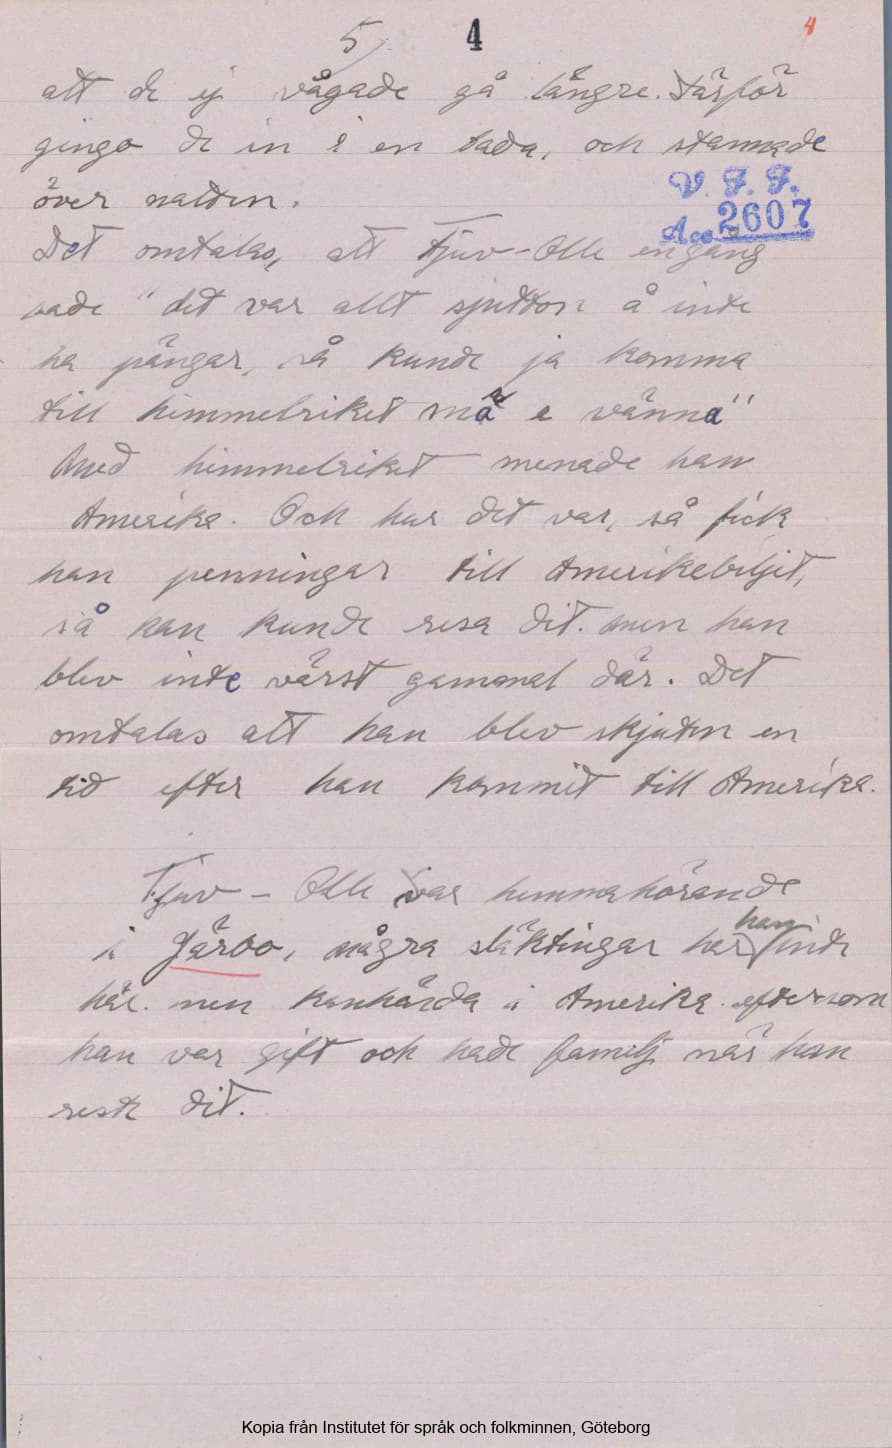 5 4 4
att de ej vågade gå längre. Därför
gingo de in i en lada, och stannade
över natten.
V. F. F.
Acc 2607
Det omtalas, att Tjuv-Olle engång
sade "det var allt sjutton å inte
ha pängar, så kunde ja komma
till himmelriket mä e vänna"
Med himmelriket menade han
Amerika. Och hur det var, så fick
han penningar till Amerikabiljet,
så han kunde resa dit. men han
blev inte värst gammal där. Det
omtalas att han blev skjuten en
tid efter han kommit till Amerika.
Tjuv-Olle var hemmahörande
i Järbo, några släktingar har han inte
här. men kanhända i Amerika. eftersom
han var gift och hade familj när han
reste dit.
Kopia från Institutet för språk och folkminnen, Göteborg